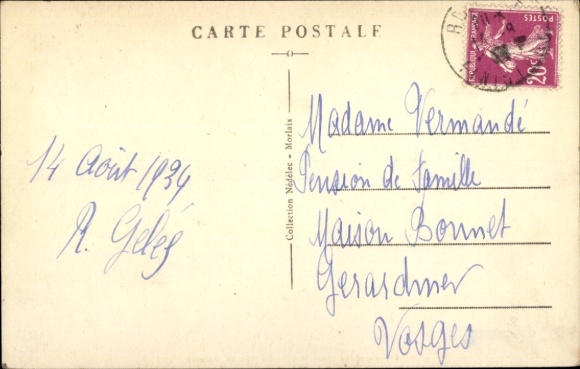 CARTE POSTALE
RÉPUBLIQUE FRANÇAISE
POSTES
20c
14 Août 1934
Collection Nédélec - Morlaix
Madame Vermandé
Pension de Famille
Maison Bonnet
Gerardmer
Vosges